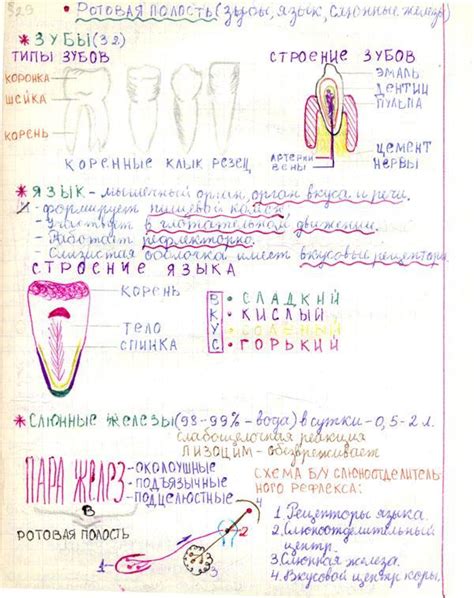 §29 • РОТОВАЯ ПОЛОСТЬ (зубы, язык, слюнные железы)
* ЗУБЫ (32)
ТИПЫ ЗУБОВ
СТРОЕНИЕ ЗУБОВ
КОРОНКА
ШЕЙКА
КОРЕНЬ
КОРЕННЫЕ КЛЫК РЕЗЕЦ
ЭМАЛЬ
ДЕНТИН
ПУЛЬПА
ЦЕМЕНТ
НЕРВЫ
АРТЕРИИ
ВЕНЫ
* ЯЗЫК - мышечный орган, орган вкуса и речи.
- формирует пищевой комок
- Участвует в глотательном движении.
- Работает рефлекторно.
- Слизистая оболочка имеет вкусовые рецепторы
СТРОЕНИЕ ЯЗЫКА
КОРЕНЬ
ТЕЛО
СПИНКА
В • СЛАДКИЙ
К • КИСЛЫЙ
У • СОЛЕНЫЙ
С • ГОРЬКИЙ
* СЛЮННЫЕ ЖЕЛЕЗЫ (98-99% - вода) в сутки - 0,5-2 л.
слабощелочная реакция
ЛИЗОЦИМ - обезвреживает
ПАРА ЖЕЛЕЗ
- ОКОЛОУШНЫЕ
- ПОДЪЯЗЫЧНЫЕ
- ПОДЧЕЛЮСТНЫЕ
В
РОТОВАЯ ПОЛОСТЬ
СХЕМА Б/У СЛЮНООТДЕЛИТЕЛЬ-
НОГО РЕФЛЕКСА:
1. Рецепторы языка.
2. Слюноотделительный
центр.
3. Слюнная железа.
4. Вкусовой центр коры.
1
2
3
4